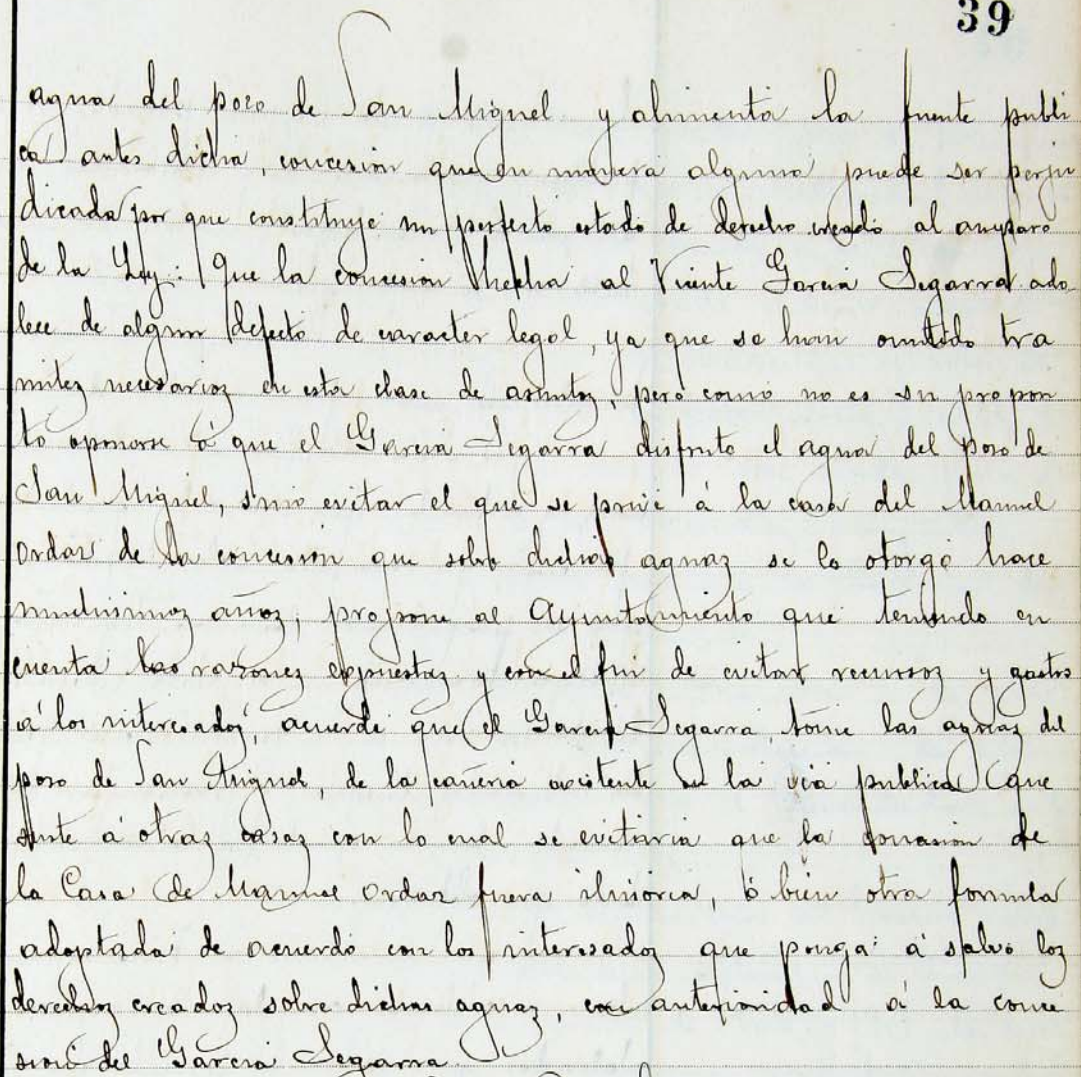 39
agua del pozo de San Miguel y alimenta la fuente publi
ca antes dicha, concesion que en manera alguna puede ser perju
dicada por que constituye un perfecto estado de derecho creado al amparo
de la Ley: Que la concesion hecha al Vicente Garcia Segarra ado-
lece de algun defecto de caracter legal, ya que se han omitido tra
mitez necesarioz en esta clase de asuntoz, pero como no es su propósi
to oponerse á que el Garcia Segarra disfrute el agua del pozo de
San Miguel, sino evitar el que se prive á la casa del Manuel
Ordaz de la concesion que sobre dichas aguaz se le otorgó hace
muchisimoz añoz, propone al Ayuntamiento que teniendo en
cuenta las razonez expuestaz y con el fin de evitar recursoz y gastos
á los interesadoz, acuerde que el Garcia Segarra, tome las aguaz del
pozo de San Miguel, de la cañeria existente en la via publica que
surte á otraz casaz con lo cual se evitaria que la concesion de
la Casa de Manuel Ordaz fuera ilusoria, ó bien otra formula
adoptada de acuerdo con los interesadoz que ponga á salvo loz
derechoz creadoz sobre dichas aguaz, con anterioridad á la conce
sion del Garcia Segarra.